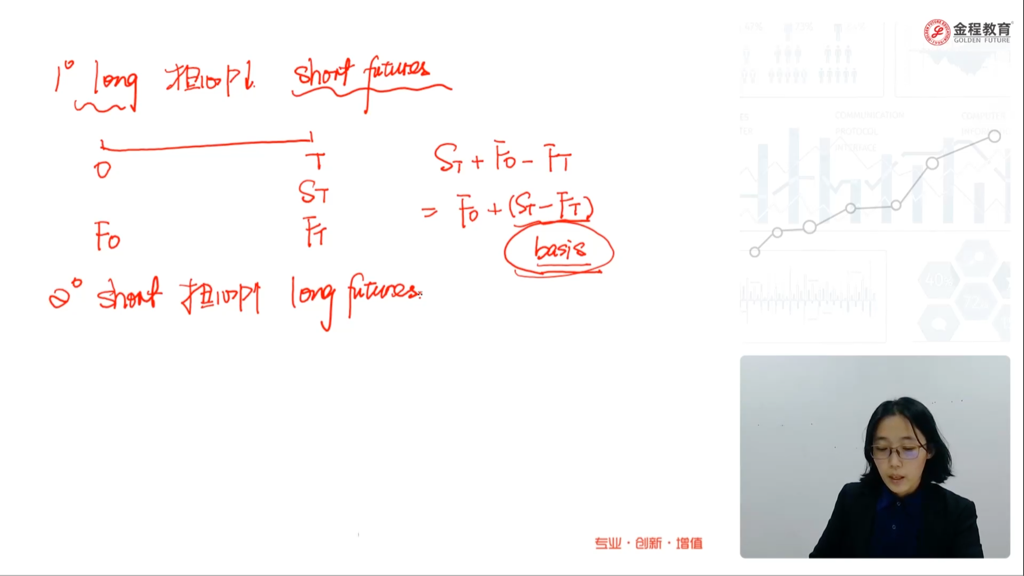 金程教育
GOLDEN FUTURE
1° long 担心P↓ short futures
0 T
S_T
F_0 F_T
S_T + F_0 - F_T
= F_0 + (S_T - F_T)
basis
2° short 担心P↑ long futures
专业·创新·增值